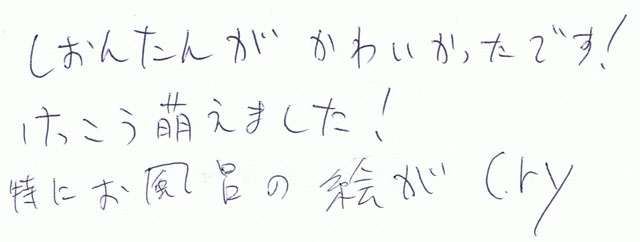 しおんたんがかわいかったです!
けっこう萌えました!
特にお風呂の絵が Cry